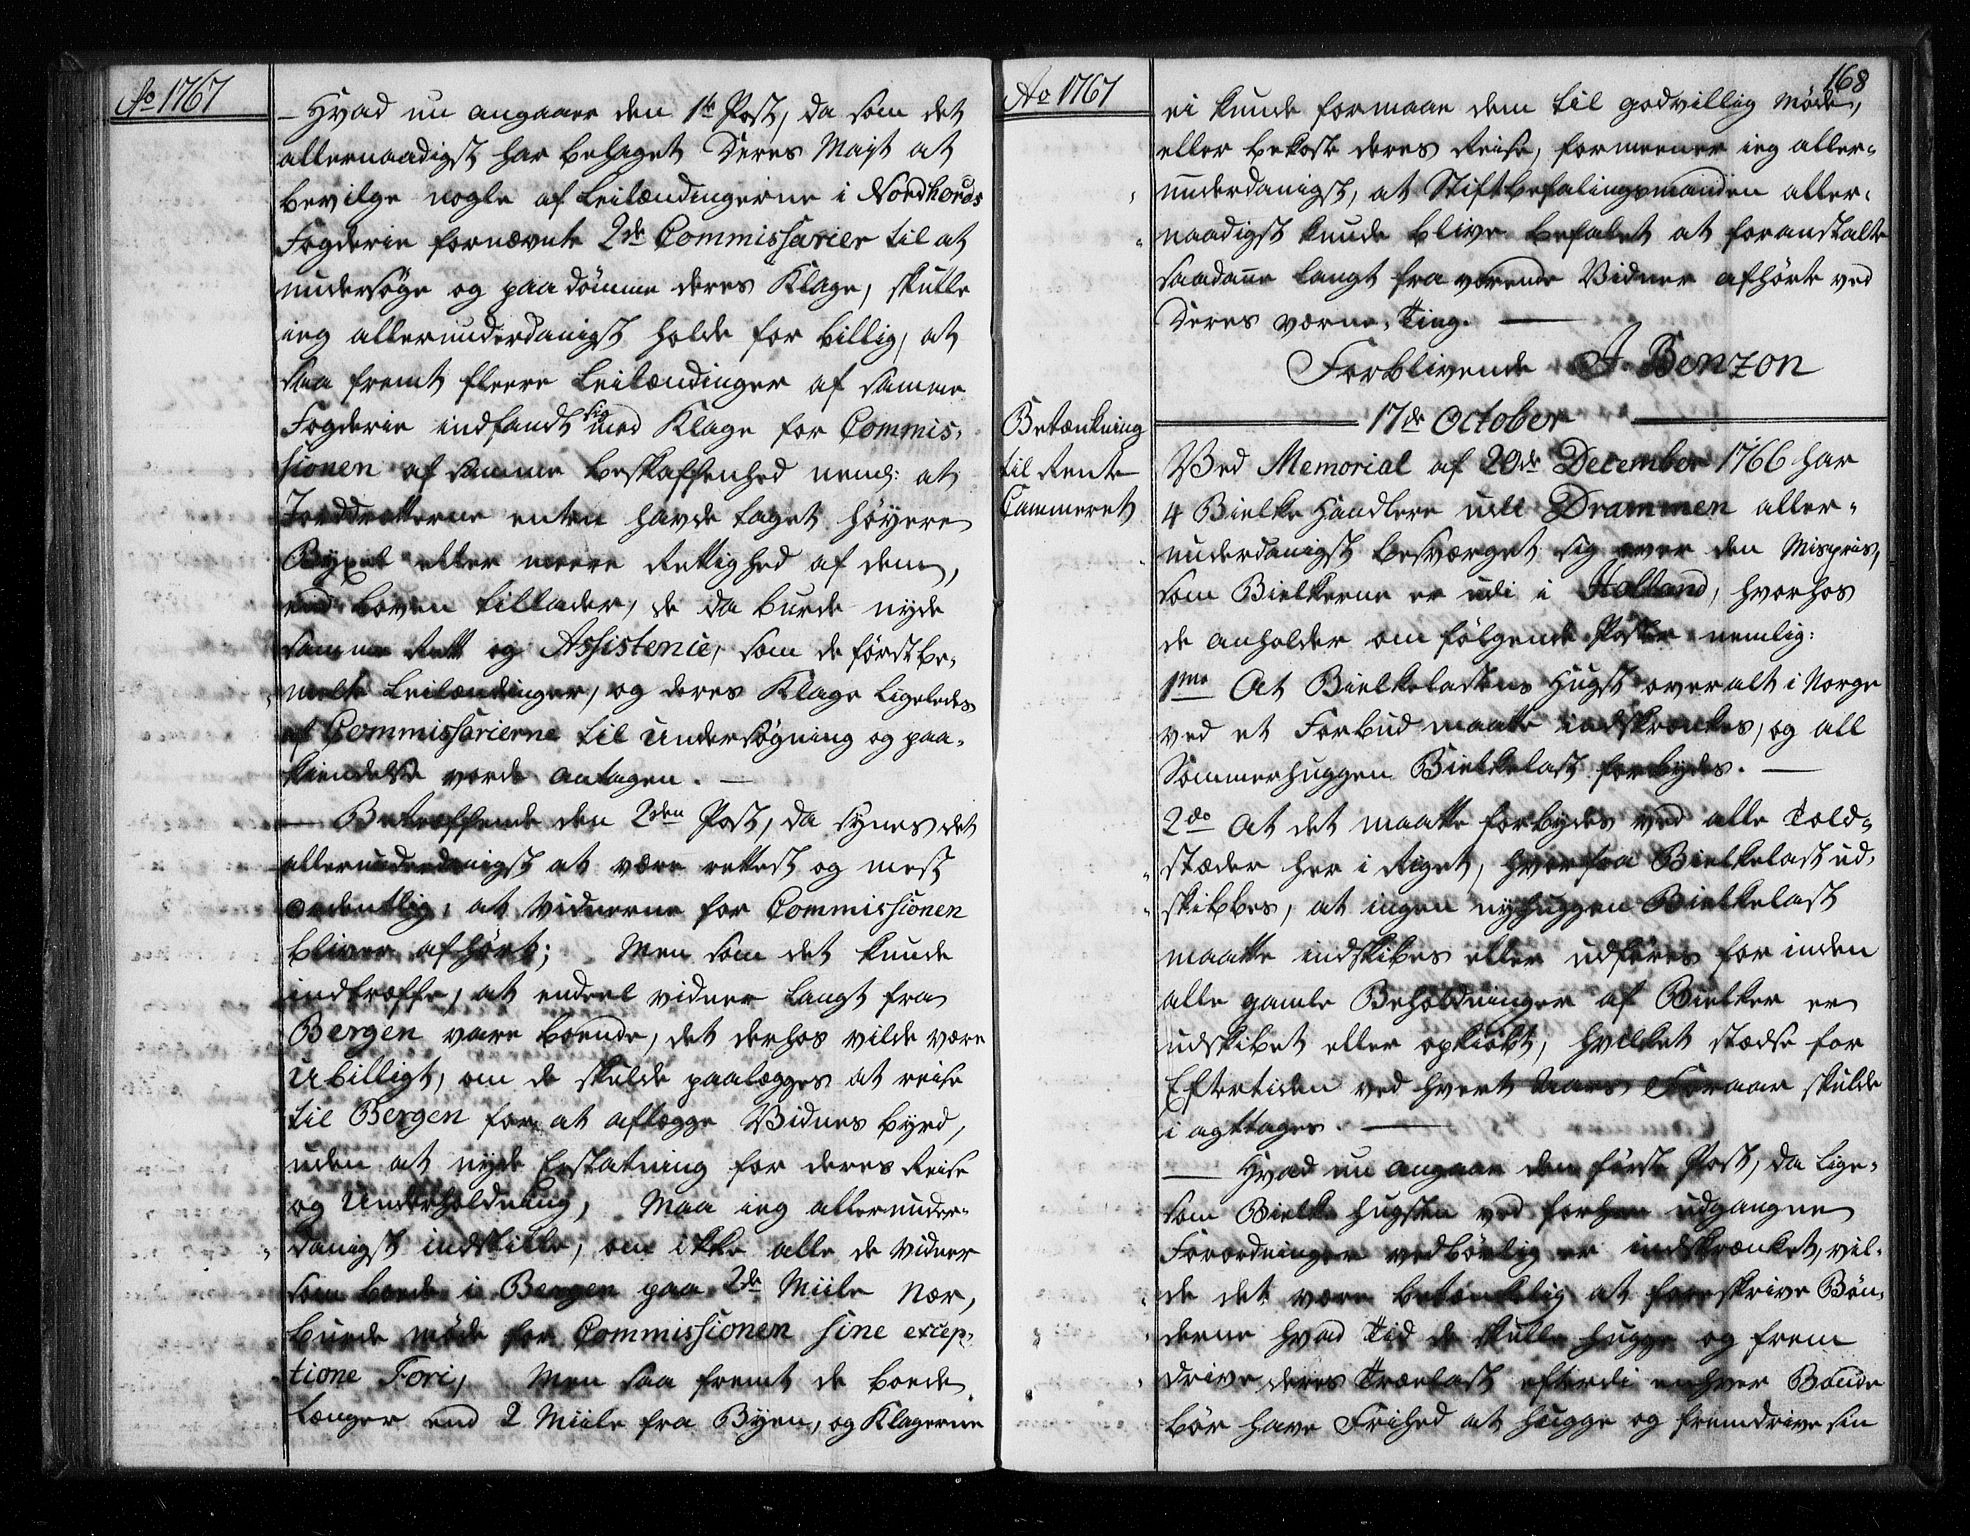 Ao 1767
– Hvad nu angaaer den 1te Post, da som det
allernaadigst har behaget Deres Majt at
bevilge nogle af Leilændingerne i Nordhords
Fogderie fornævnte 2de Commissarier til at
undersøge og paadømme deres Klage, skulle
ieg allerunderdanigst holde for billig, at
saa fremt fleere Leilændinger af samme
Fogderie indfandt sig med Klage for Commis-
sionen af samme beskaffenhed neml: at
Jorddrotterne enten havde taget høyere
Byxel eller meere Rettighed af dem,
end Loven tillader, de da burde nyde
samme Rett og Assistence, som de førstbe-
meldte Leilændinger, og deres Klage ligeledes
af Commissarierne til Undersøgning og paa-
kiendelse vorde antagen. –
– Betreffende den 2den Post, da synes det
allerunderdanigst at være rettest og mest
ordentlig, at Vidnerne for Commissionen
bliver afhørt; Men som det kunde
indtræffe, at endeel vidner langt fra
Bergen vare boende, det derhos vilde være
Ubilligt, om de skulde paalegges at reise
til Bergen for at aflægge Vidnes byrd,
uden at nyde Erstatning for deres Reise
og Underholdning, Maa ieg allerunder-
danigst indstille, om ikke alle de Vidner
som boede i Bergen paa 2de Miile nær,
burde møde for Commissionen sine excep-
tione Fori, Men saa fremt de boede
længer end 2 Miile fra Byen, og Klagerne
Ao 1767
168
ei kunde formaae dem til godvillig Møde,
eller bekoste deres Reise, formeener ieg aller-
underdanigst, at Stiftbefalingsmanden aller-
naadigst kunde blive befalet at foranstalte
saadanne langt fra værende Vidner afhørte ved
Deres værne-Ting. –
Forblivende J. Benzon
17de October
Betænkning
til Rente
Cammeret
Ved Memorial af 29de December 1766 har
4 Bielke Handlere udi Drammen aller-
underdanigst besværget sig over den Mispriis,
som Bielkerne er udi i Holland, hvorhos
de anholder om følgende Poster nemlig:
1mo At Bielkelastens Hugst overalt i Norge
ved et Forbud maatte indskrænkes, og all
Sommerhuggen Bielkelast forbydes. –
2do At det maatte forbydes ved alle Told-
stæder her i Riget, hvorfra Bielkelast ud-
skibbes, at ingen nyhuggen Bielkelast
maatte indskibes eller udføres for inden
alle gamle Beholdninger af Bielker er
udskibet eller opkiøbt, hvilket stedse for
Eftertiden ved hvert Aars Foraar skulde
i agttages. –
– Hvad nu angaaer den første Post, da lige-
som Bielke hugsten ved forhen udgangne
Forordninger vedbørlig er indskrænket, vil-
de det være betænkelig at foreskrive Bøn-
derne hvad Tid de skulle hugge og frem
drive deres Trælast efterdi enhver Bonde
bør have Frihed at hugge og fremdrive sin